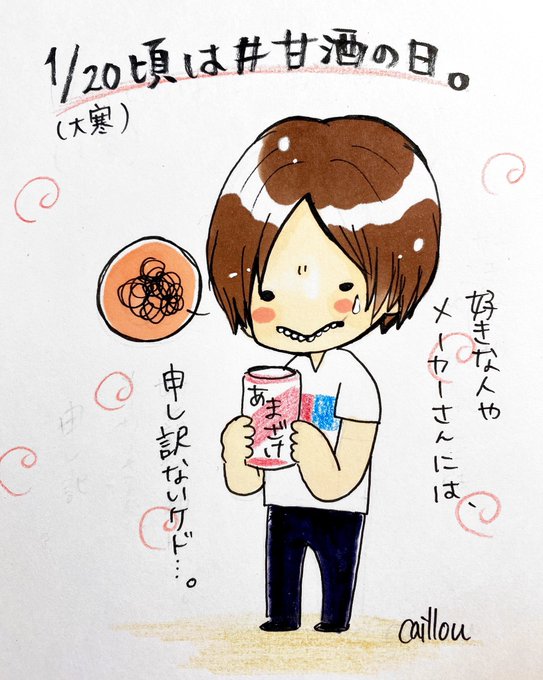 1/20頃は#甘酒の日。
(大寒)
好きな人や
メーカーさんには、
申し訳ないケド…。
あまざけ
caillou